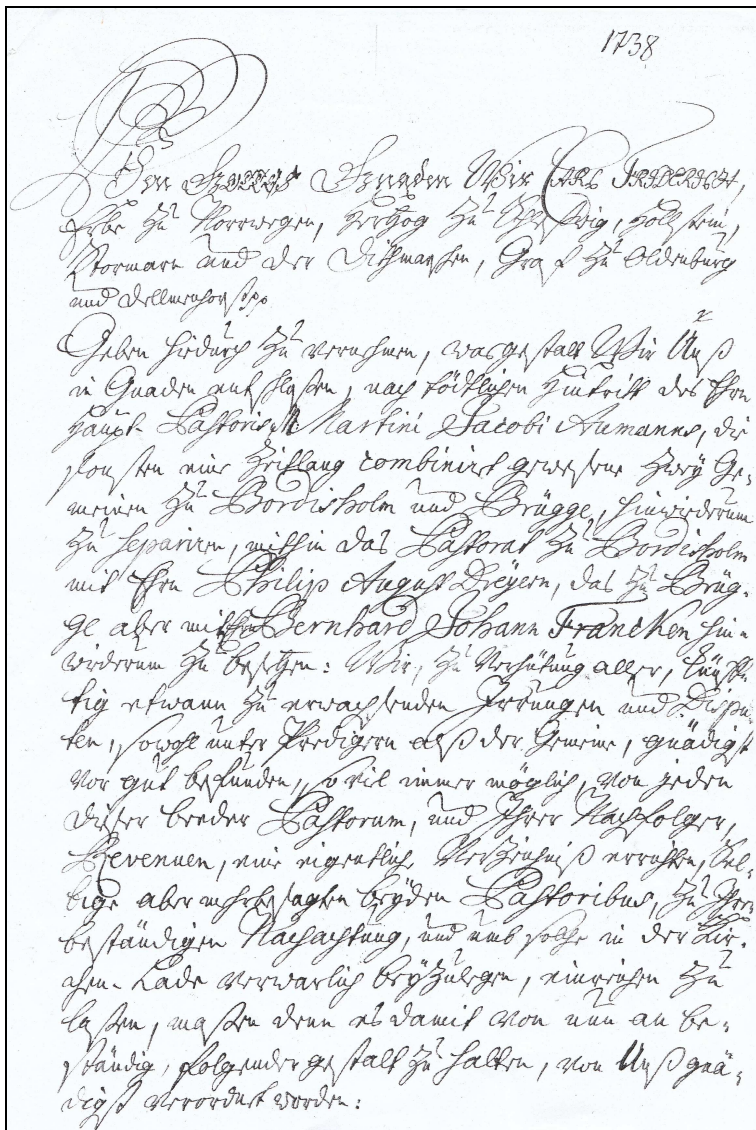 1738
Von Gottes Gnaden Wir Carl Friderich,
Erbe zu Norwegen, Hertzog zu Schleßwig, Hollstein,
Stormarn und der Dithmarschen, Graf zu Oldenburg
und Dellmenhorst pp
Geben hiedurch zu vernehmen, was gestalt Wir Unß
in Gnaden entschloßen, nach tödtlichen Hintritt des Ehrn
Haupt-Pastoris M. Martini Jacobi Aumanns, die
sonsten eine Zeitlang combinirt gewesene zwey Ge-
meinen zu Bordisholm und Brügge, hinwiederum
zu separiren, mithin das Pastorat zu Bordisholm
mit Ehrn Philip August Dreyern, das zu Brüg-
ge aber mit Ehrn Bernhard Johann Francken hin-
wiederum zu besetzen: Wir, zu Verhütung aller, künff-
tig etwann zu erwachsenden Irrungen und Dispu-
ten, sowohl unter Predigern alß der Gemeine, gnädigst
vor gut befunden, so viel immer möglich, von jeden
dieser beeder Pastorum, und Ihrer Nachfolger,
Revenuen, eine eigentliche Verzeichniß errichten, sel-
bige aber mehrbesagten beyden Pastoribus, zu Ihrer
beständigen Nachachtung, und umb solche in der Kir-
chen-Lade verwarlich beyzulegen, einreichen zu
laßen, maßen denn es damit von nun an be-
ständig, folgender gestalt zu halten, von Unß gnä-
digst verordnet worden: